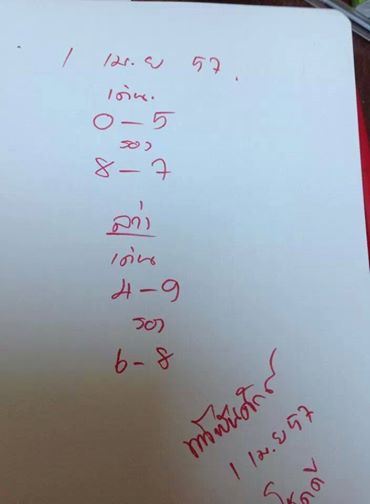 1 เม.ย 57.
เด่น.
0-5
รอง
8-7
ล่าง
เด่น
4-9
รอง
6-8
1 เม.ย 57
โชคดี